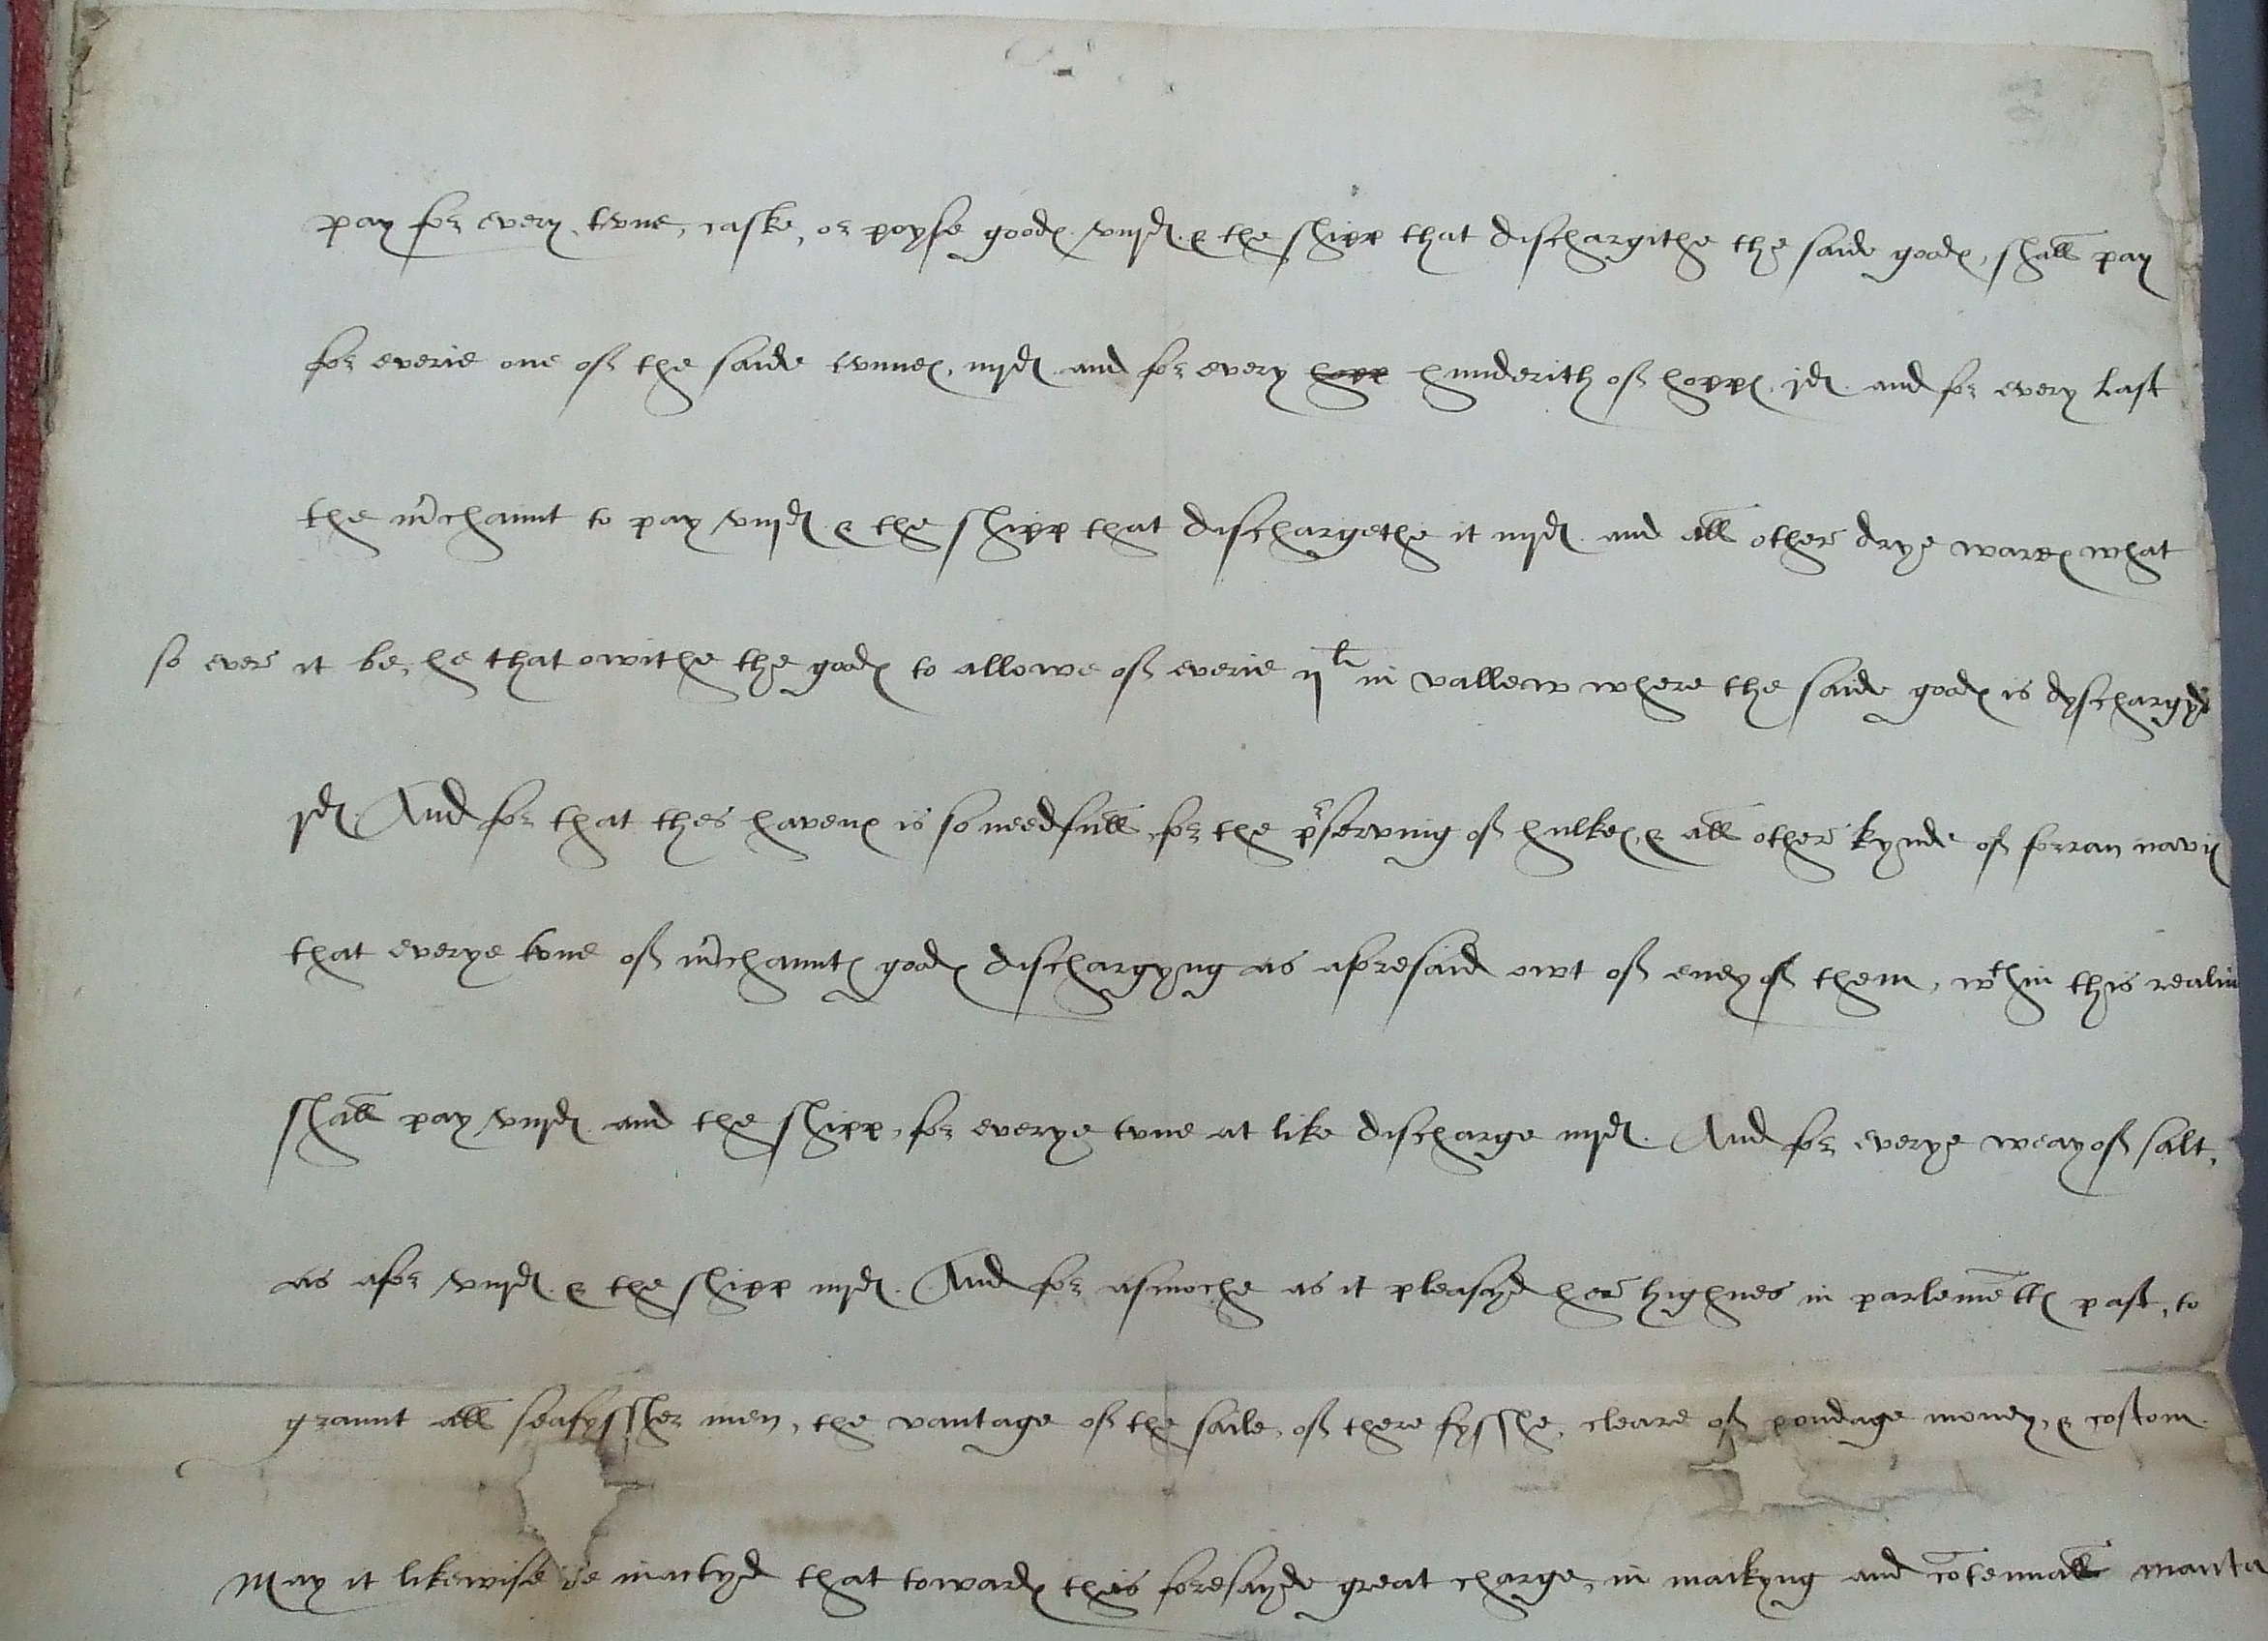 pay for every, tvne, caske, or poyse good(es) viijd. & the shipp that dischargithe the saide good(es), shall pay
for everie one off the saide tvnn(es), iiijd. and for every hopp hunderith off hopp(es), jd. and for every last
the m(er)chaunt to pay viijd. & the shipp that dischargethe it iiijd. and all other drye war(es) what
so ever it be, he that owithe the good(es) to allowe off everie ijli in vallew where the saide good(es) is dyschargyd
jd. And for that thes haven(es) is so needfull, for the p(re)serving off hulk(es), & all other kynde off forran navi(es)
that everye tvne off m(er)chaunt(es) good(es) dischargyng as aforesaid owt off eney off them, wthin this realm
shall pay viijd. and the shipp, for everye tvne at like discharge iiijd. And for everye weay off salt,
as afor viijd. & the shipp iiijd. And for asmoche as it pleasyd her highnes in parlemētt(es) past, to
graunt all seafyssher men, the vantage off the saile, off there fysshe, cleare off pondage money, & costom.
May it likewise be inactyd that toward(es) this foresayde great charge, in maikyng and cōtenuall